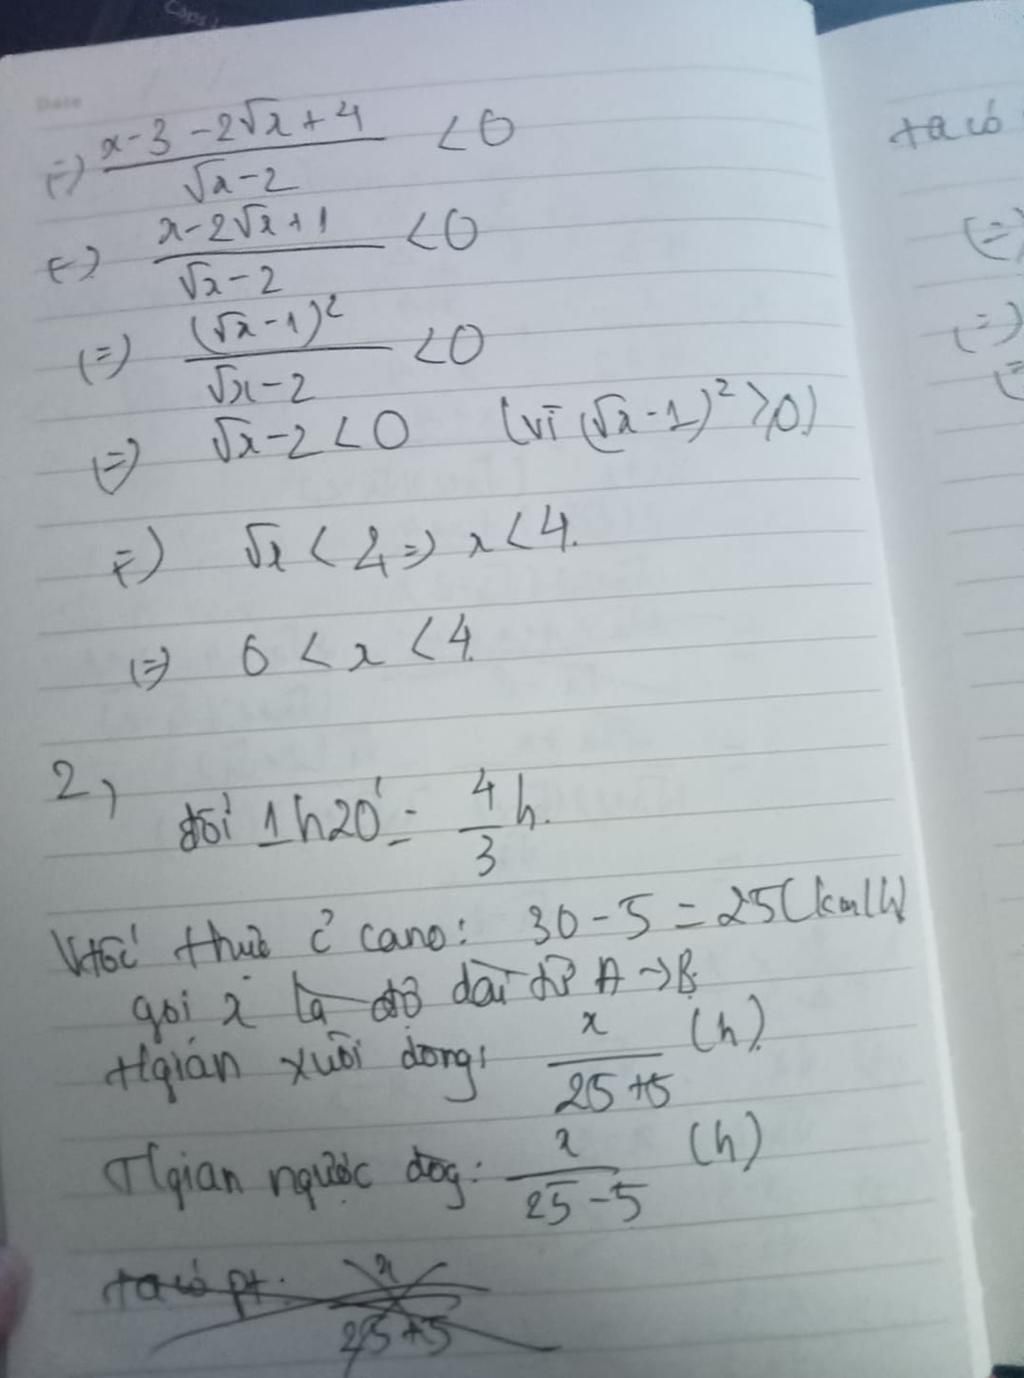 Caps
Date
(=) x-3-2√x+4 / √x-2 <0
(=) x-2√x+1 / √x-2 <0
(=) (√x-1)² / √x-2 <0
(=) √x-2<0 (vì (√x-1)² ≥0)
(=) √x < 2 => x<4.
(=) 0 < x < 4.
2,
đổi 1h20' = 4/3 h.
Vtốc thực cano: 30-5=25(km/h)
gọi x là độ dài từ A→B.
tgian xuôi dòng: x / 25+5 (h).
Tgian ngược dòg: x / 25-5 (h)
ta có pt: x / 25+5
ta có
(=)
(=)
(=